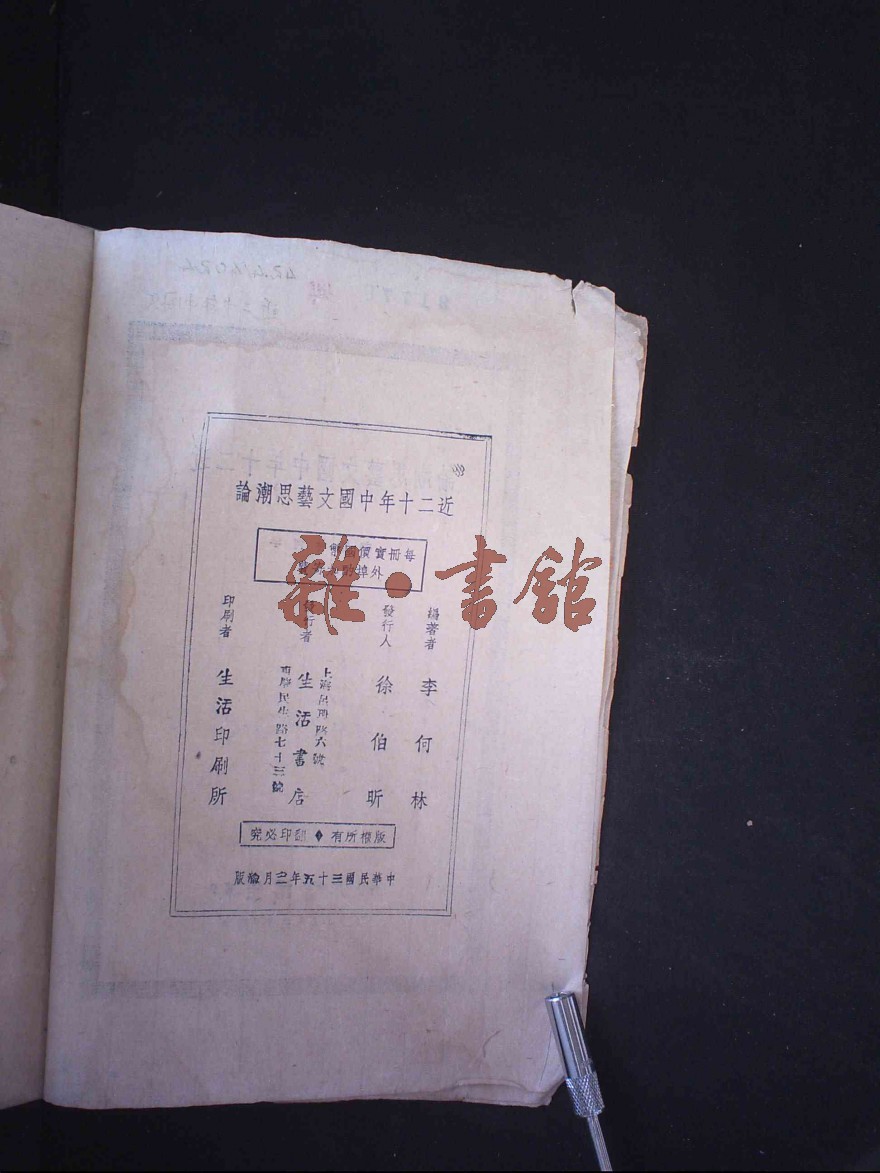 近二十年中國文藝思潮論
每冊實價國幣
外埠
編著者 李何林
發行人 徐伯昕
發行者 生活書店
上海呂班路六號
重慶民生路七十三號
印刷者 生活印刷所
版權所有 ♦ 翻印必究
中華民國三十五年二月版
雜·書館